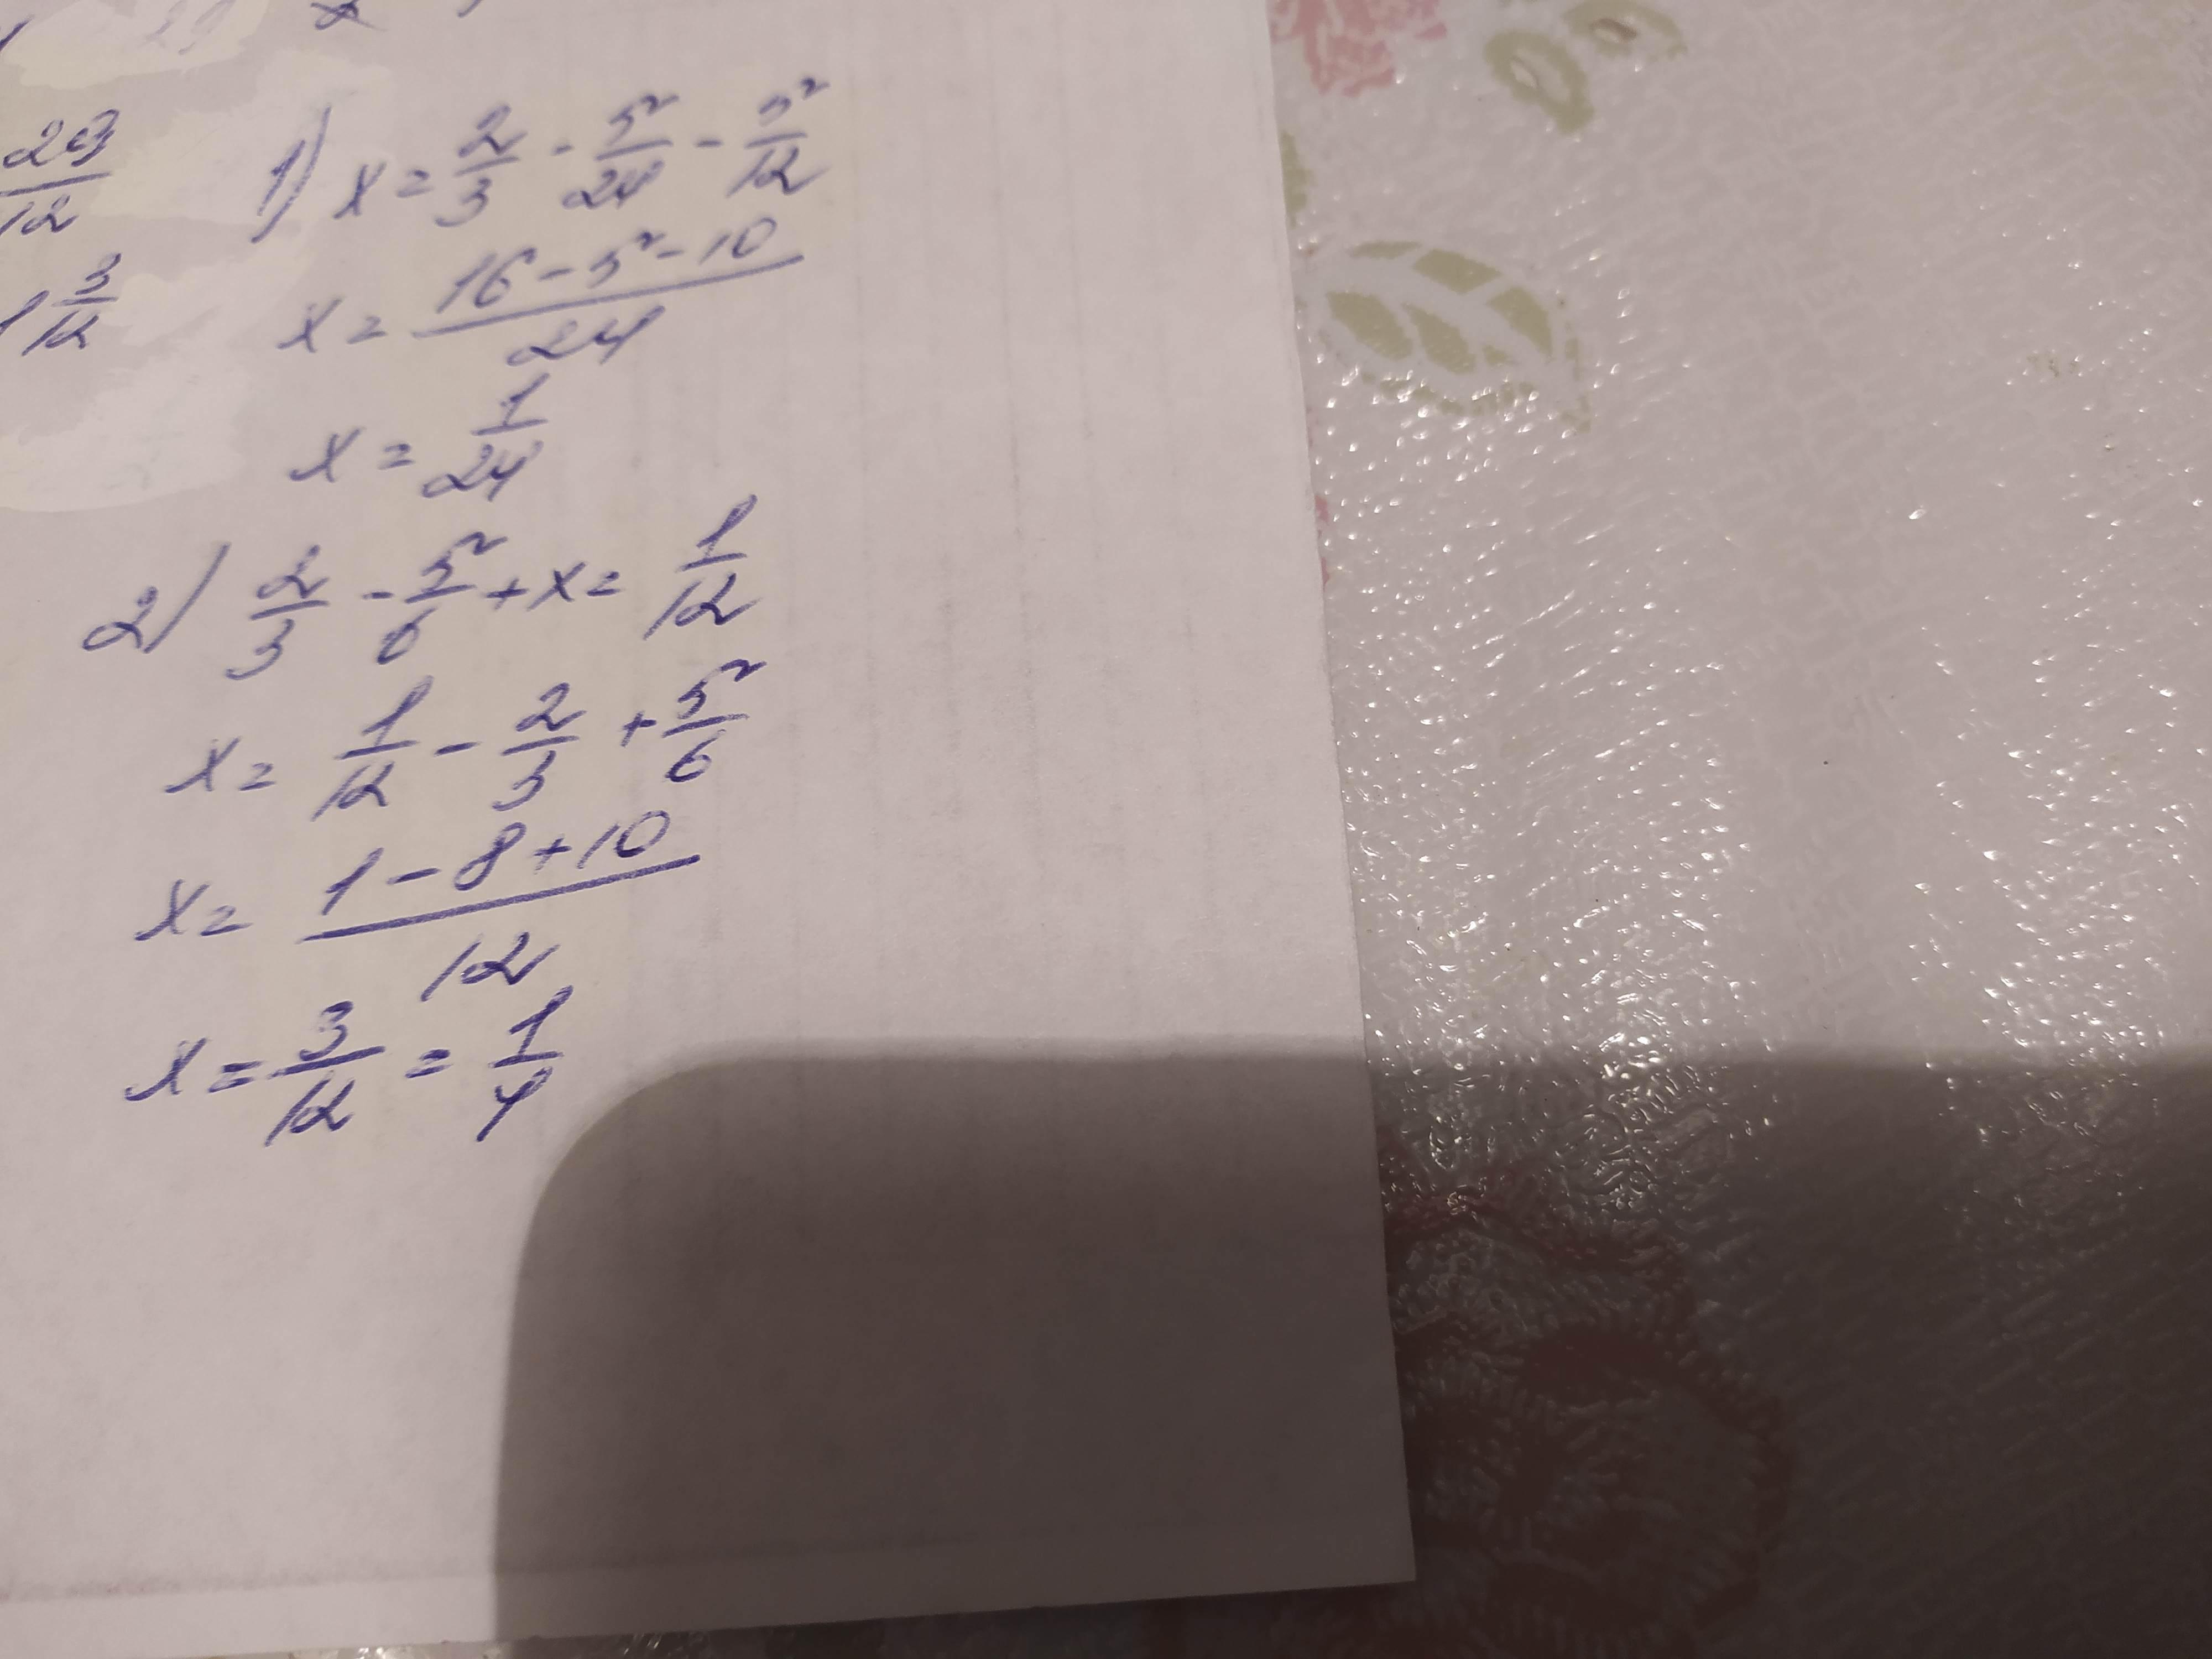 1) x = 2/3 - 5/24 - 5/12
x = (16 - 5 - 10)/24
x = 1/24
2) 2/3 - 5/6 + x = 1/12
x = 1/12 - 2/3 + 5/6
x = (1 - 8 + 10)/12
x = 3/12 = 1/4
1 3/12